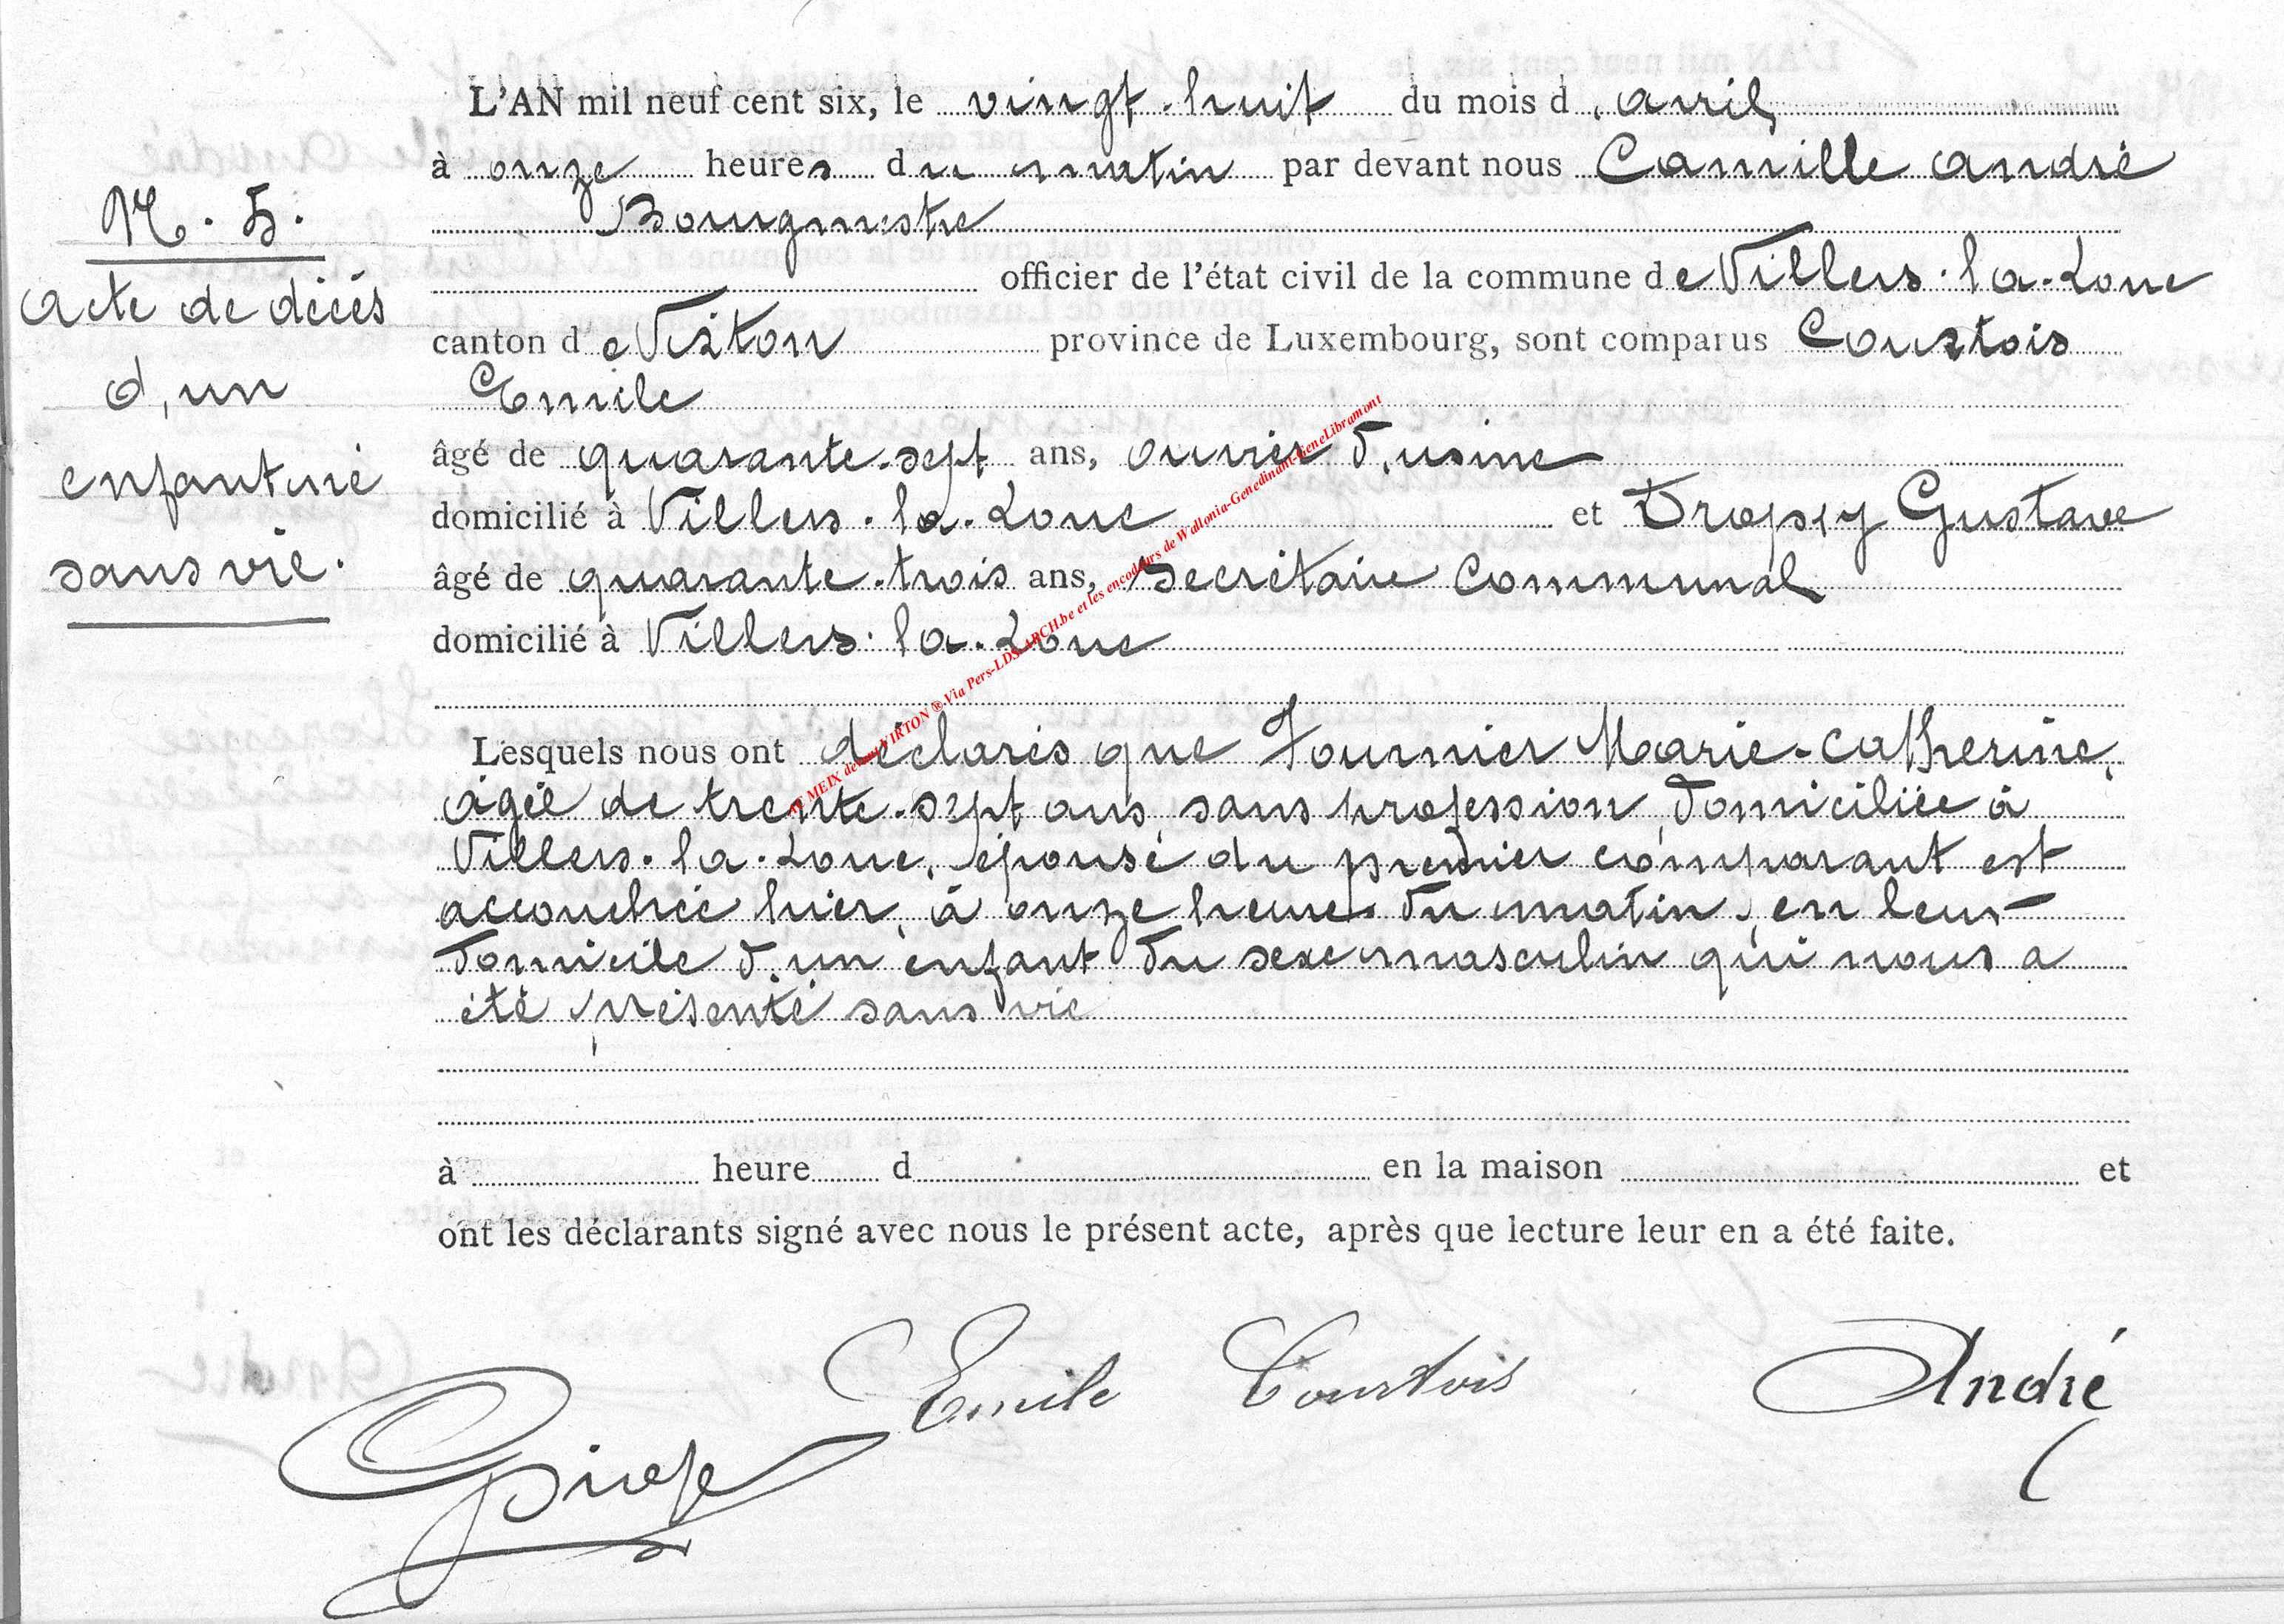 L'AN mil neuf cent six, le vingt-huit du mois d'avril
à onze heures du matin par devant nous Camille André
Bourgmestre
officier de l'état civil de la commune de Villers-la-Loue
canton de Virton province de Luxembourg, sont comparus Courtois
Emile
âgé de quarante-sept ans, ouvrier d'usine
domicilié à Villers-la-Loue et Dropsy Gustave
âgé de quarante-trois ans, Secrétaire Communal
domicilié à Villers-la-Loue
Lesquels nous ont déclarés que Fournier Marie-Catherine,
agée de trente-sept ans, sans profession, domiciliée à
Villers-la-Loue, épouse du premier comparant est
accouchée hier, à onze heures du matin, en leur
domicile d'un enfant du sexe masculin qui nous a
été présenté sans vie
à heure d en la maison et
ont les déclarants signé avec nous le présent acte, après que lecture leur en a été faite.
N. 5.
Acte de décés
d'un
enfant né
sans vie.
MEIX devant VIRTON ® Via Pers-LDS-ARCH.be et les encodeurs de Wallonia-Genedinant-GeneLibramont
Emile Courtois André